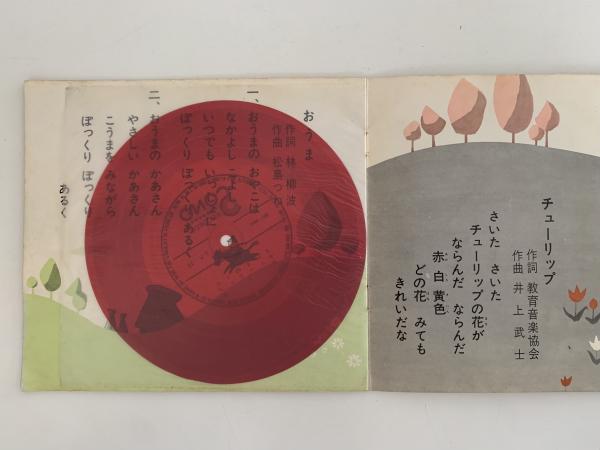 おうま
作詞 林 柳波
作曲 松島つね
一、おうまの おやこは
なかよし こよし
いつでも いっしょに
ぽっくり ぽっくり あるく
二、おうまの かあさん
やさしい かあさん
こうまを みながら
ぽっくり ぽっくり
あるく
チューリップ
作詞 教育音楽協会
作曲 井上武士
さいた さいた
チューリップの花が
ならんだ ならんだ
赤 白 黄色
どの花 みても
きれいだな